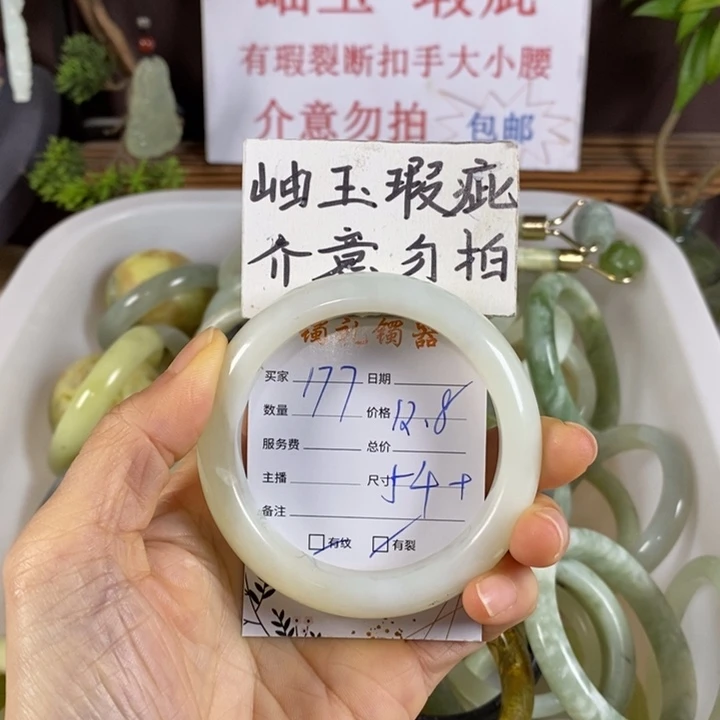 岫玉 瑕疵
有瑕裂断扣手大小腰
介意勿拍 包邮
岫玉瑕疵
介意勿拍
买家 177 日期
数量 价格 12.8
服务费 总价
主播 尺寸 54+
备注
有纹 有裂